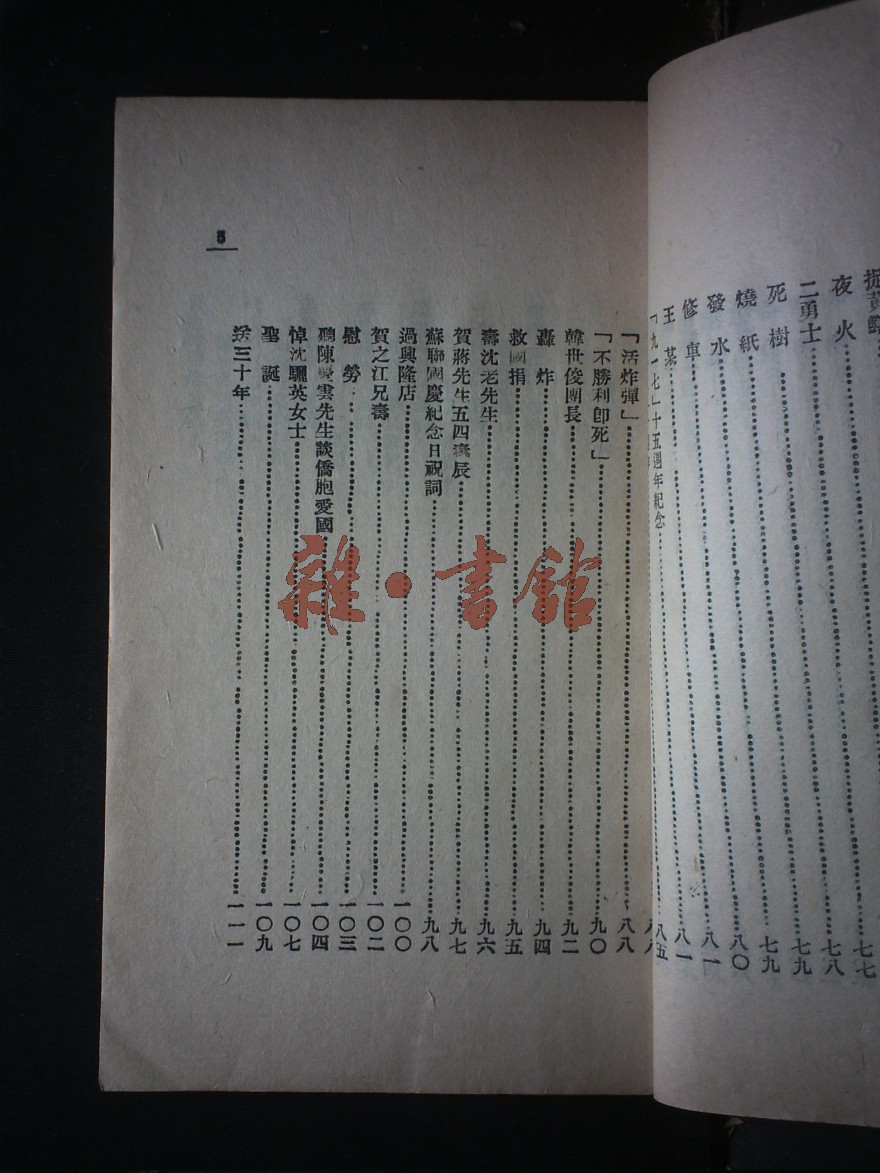 夜火 七八
二勇士 七九
死樹 七九
燒紙 八〇
發水 八一
修車 八一
王某 八五
「九一七」十五週年紀念
「活炸彈」 八八
「不勝利卽死」 九〇
韓世俊團長 九二
轟炸 九四
救國捐 九五
壽沈老先生 九六
賀蔣先生五四壽辰 九七
蘇聯國慶紀念日祝詞 九八
過興隆店 一〇〇
賀之江兄壽 一〇二
慰勞 一〇三
聽陳 雲先生談僑胞愛國 一〇四
悼沈驪英女士 一〇七
聖誕 一〇九
送三十年 一一一
5
雜·書館